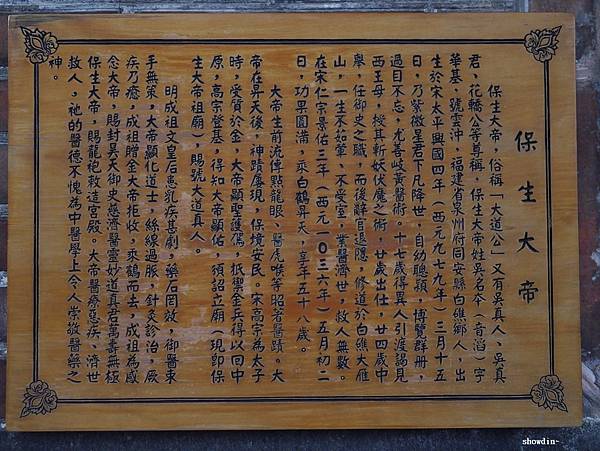 保生大帝
保生大帝，俗稱「大道公」又有吳真人、吳真
君、花轎公等尊稱，保生大帝姓吳名夲（音滔）字
華基，號雲沖，福建省泉州府同安縣白礁鄉人，出
生於宋太平興國四年（西元九七九年）三月十五
日，乃紫微星君下凡降世，自幼聰穎，博覽群册，
過目不忘，尤善岐黃醫術。十七歲得異人引渡謁見
西王母，授其斬妖伏魔之術，廿歲出仕，廿四歲中
舉，任御史之職，而後辭官退隱，修道於白礁大雁
山，一生不茹葷，不受室，業醫濟世，救人無數。
在宋仁宗景佑三年（西元一０三六年）五月初二
日，功果圓滿，乘白鶴昇天，享年五十八歲。
大帝生前流傳點龍眼、醫虎喉等昭著醫蹟。大
帝在昇天後，神蹟屢現，保境安民。宋高宗為太子
時，受質於金，大帝顯聖護僞，抵禦金兵得以回中
原，高宗登基，得知大帝顯佑，頒詔立廟（現即保
生大帝祖廟），賜號大道真人。
明成祖文皇后患乳疾甚劇，藥石罔效，御醫束
手無策，大帝顯化道士，絲線過脈，針灸診治，厥
疾乃癒，成祖贈金大帝拒收，乘鶴而去，成祖為感
念大帝，賜封昊天御史慈濟醫靈妙道真君萬壽無極
保生大帝，賜龍袍敕造宮殿。大帝醫療惡疾、濟世
救人，祂的醫德不愧為中醫學上令人崇敬醫藥之
神。
showdin~